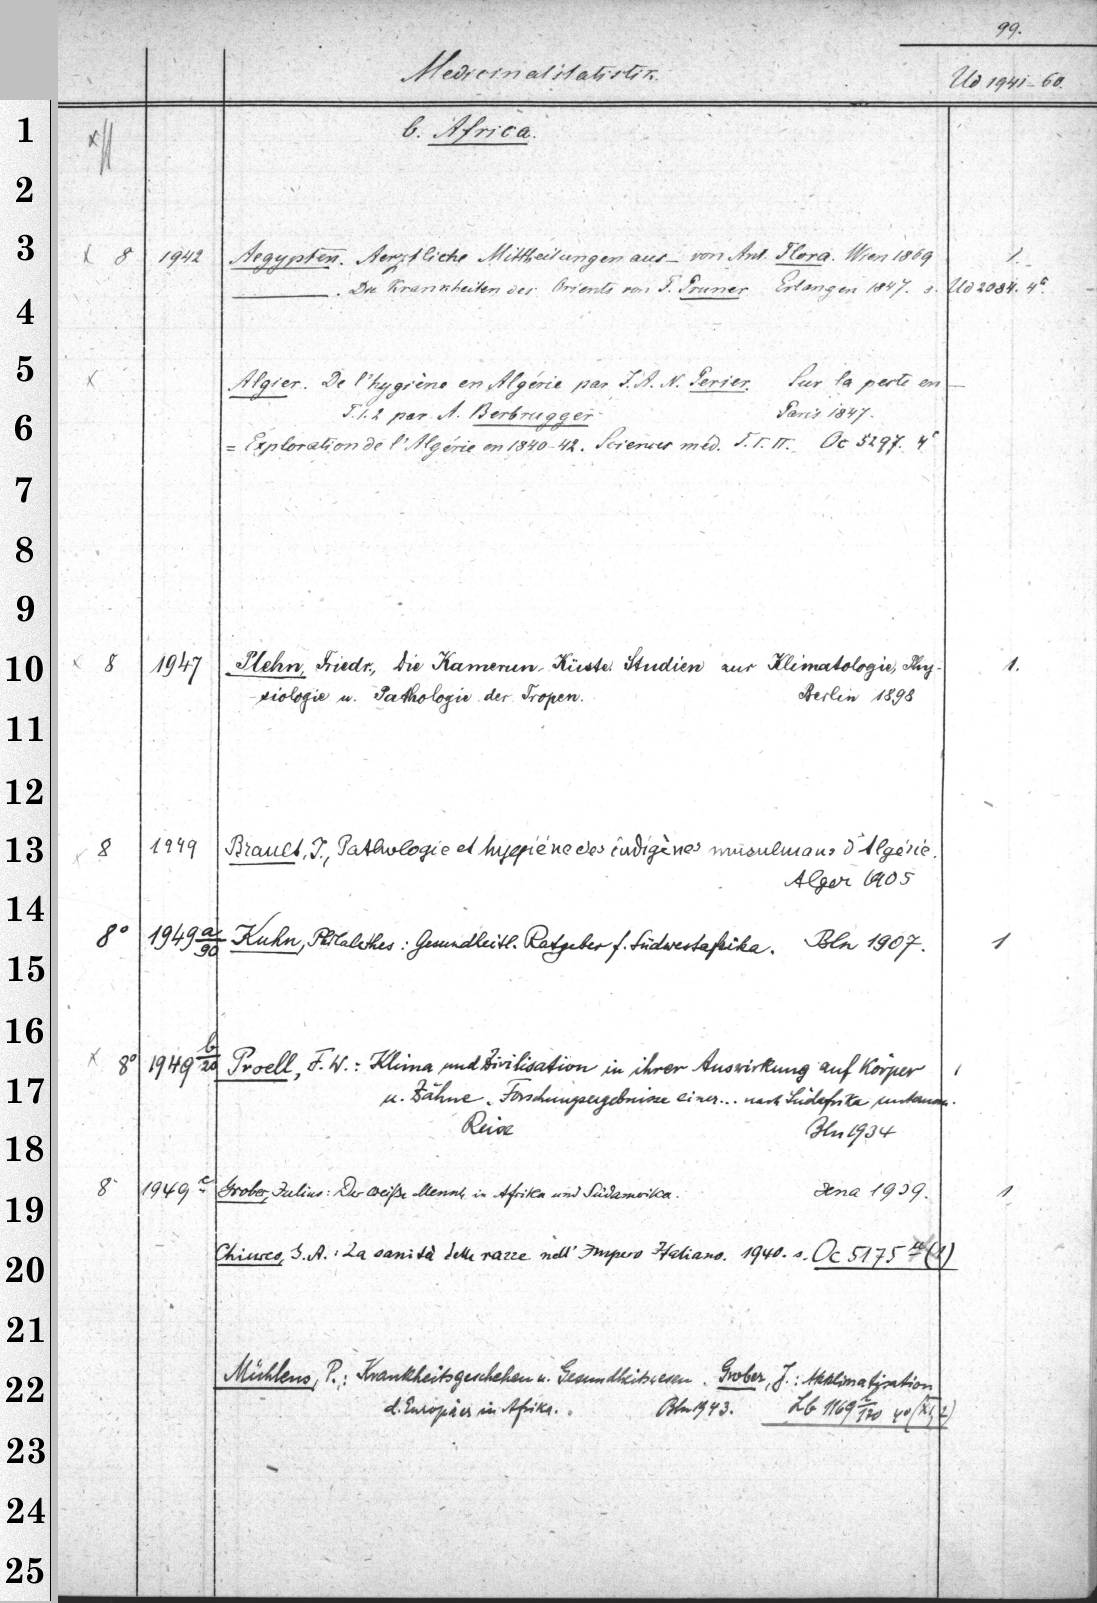 99.
Medicinalstatistik.
Ud 1941-60.
b. Africa.
x 8 1942 Aegypten. Aerztliche Mittheilungen aus — von Ant. Flora. Wien 1869 1.
———. Die Krankheiten des Orients von F. Pruner Erlangen 1847. s. Ud 2084. 4°.
x Algier. De l'hygiène en Algérie par J. A. N. Perier. Sur la peste en —
T. 1. 2 par A. Berbrugger Paris 1847.
= Exploration de l'Algérie en 1840-42. Sciences méd. T. I. II. Oc 5297. 4°
x 8 1947 Plehn, Friedr., Die Kamerun-Küste. Studien zur Klimatologie, Phy- 1.
siologie u. Pathologie der Tropen. Berlin 1898
x 8 1949 Brault, J., Pathologie et hygiène des indigènes musulmans d'Algérie.
Alger 1905
8° 1949 a/90 Kuhn, Philalethes: Gesundheitl. Ratgeber f. Südwestafrika. Bln 1907. 1
x 8° 1949 b/20 Proell, F. W.: Klima und Zivilisation in ihrer Auswirkung auf Körper 1
u. Zähne. Forschungsergebnisse einer... nach Südafrika unternom.
Reise Bln 1934
8° 1949 c Grober, Julius: Der weiße Mensch in Afrika und Südamerika. Jena 1939. 1
Chiurco, G. A.: La sanità delle razze nell' Impero Italiano. 1940. s. Oc 5175 (1)
Mühlens, P.: Krankheitsgeschehen u. Gesundheitswesen. Grober, J.: Akklimatisation
d. Europäer in Afrika. Bln 1943. Lb 1169 r/120 4° (XI, 2)